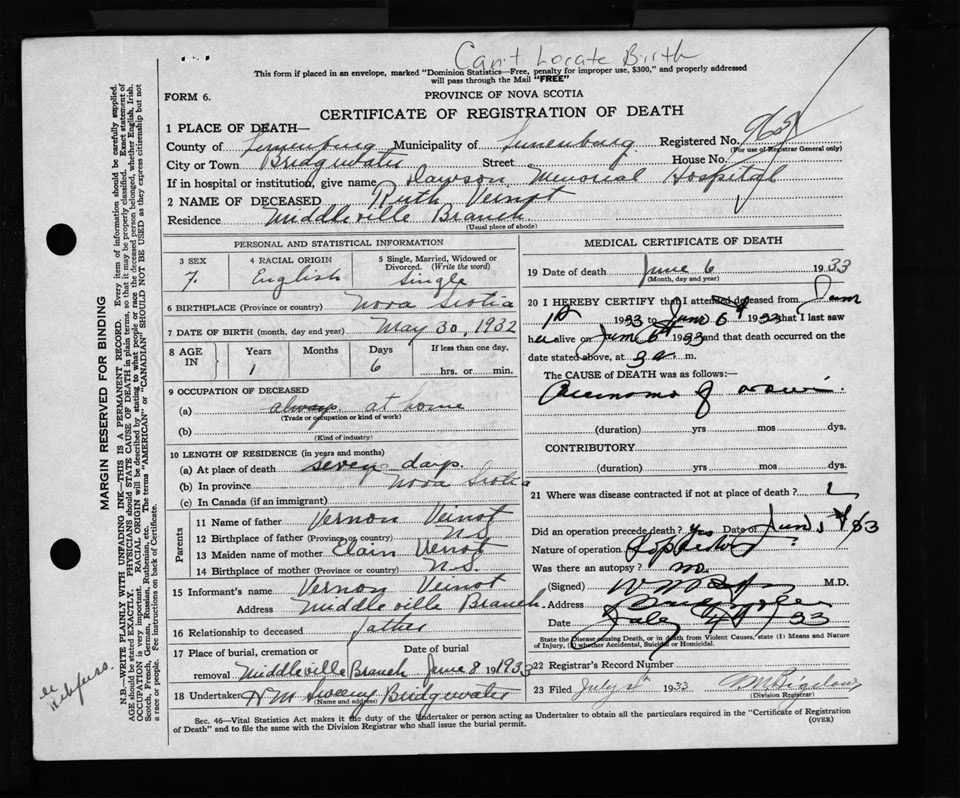 Can't Locate Birth
This form if placed in an envelope, marked "Dominion Statistics—Free, penalty for improper use, $300," and properly addressed
will pass through the Mail "FREE"
FORM 6.
PROVINCE OF NOVA SCOTIA
CERTIFICATE OF REGISTRATION OF DEATH
1 PLACE OF DEATH—
County of Lunenburg Municipality of Lunenburg Registered No.
(For use of Registrar General only)
City or Town Bridgewater Street House No.
If in hospital or institution, give name Dawson Memorial Hospital
2 NAME OF DECEASED Ruth Veinot
Residence Middleville Branch
(Usual place of abode)
PERSONAL AND STATISTICAL INFORMATION
3 SEX
4 RACIAL ORIGIN
5 Single, Married, Widowed or Divorced. (Write the word)
F. English Single
6 BIRTHPLACE (Province or country) Nova Scotia
7 DATE OF BIRTH (month, day and year) May 30, 1932
8 AGE IN
Years Months Days If less than one day,
1 6 hrs. or min.
9 OCCUPATION OF DECEASED
(a) always at home
(Trade or occupation or kind of work)
(b)
(Kind of industry)
10 LENGTH OF RESIDENCE (in years and months)
(a) At place of death seven days
(b) In province Nova Scotia
(c) In Canada (if an immigrant)
Parents
11 Name of father Vernon Veinot
12 Birthplace of father (Province or country) N.S.
13 Maiden name of mother Clair Veinot
14 Birthplace of mother (Province or country) N.S.
15 Informant's name Vernon Veinot
Address Middleville Branch
16 Relationship to deceased father
17 Place of burial, cremation or removal Date of burial
Middleville Branch June 8 1933
18 Undertaker H M Sweeny Bridgewater
(Name and address)
MEDICAL CERTIFICATE OF DEATH
19 Date of death June 6 1933
(Month, day and year)
20 I HEREBY CERTIFY that I attended deceased from June
1st 1933 to June 6th 1933 that I last saw
h alive on June 6th 1933 and that death occurred on the
date stated above, at 3 a. m.
The CAUSE of DEATH was as follows:—
of
(duration) yrs mos dys.
CONTRIBUTORY
(duration) yrs mos dys.
21 Where was disease contracted if not at place of death? ?
Did an operation precede death? Yes Date of June 1st 33
Nature of operation ?
Was there an autopsy? no.
(Signed) M.D.
Address
Date July 4th 33
State the Disease causing Death, or in death from Violent Causes, state (1) Means and Nature of Injury, (2) whether Accidental, Suicidal or Homicidal.
22 Registrar's Record Number
23 Filed July 1933
(Division Registrar)
Sec. 46—Vital Statistics Act makes it the duty of the Undertaker or person acting as Undertaker to obtain all the particulars required in the "Certificate of Registration
of Death" and to file the same with the Division Registrar who shall issue the burial permit.
(OVER)
MARGIN RESERVED FOR BINDING
N.B.—WRITE PLAINLY WITH UNFADING INK—THIS IS A PERMANENT RECORD. Every item of information should be carefully supplied.
AGE should be stated EXACTLY. PHYSICIANS should STATE CAUSE OF DEATH in plain terms, so that it may be properly classified. Exact statement of
OCCUPATION is very important. RACIAL ORIGIN will be described by stating to what people or race the deceased person belonged, whether English, Irish,
Scotch, French, German, Russian, Ruthenian, etc. The terms "AMERICAN" or "CANADIAN" SHOULD NOT BE USED as they express citizenship but not
a race or people. Fee instructions on back of Certificate.